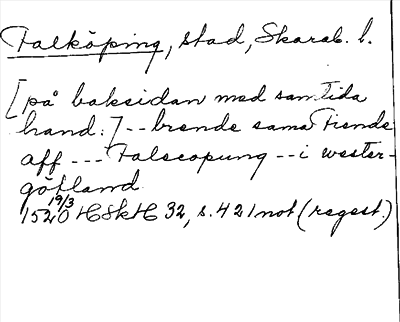 Falköping, stad, Skarab. l.
[på baksidan med samtida
hand:] -- brende sama Tiende
aff --- Falscopung -- i wester-
götland
19/3
1520 HSkH 32, s. 421 not (regest.)